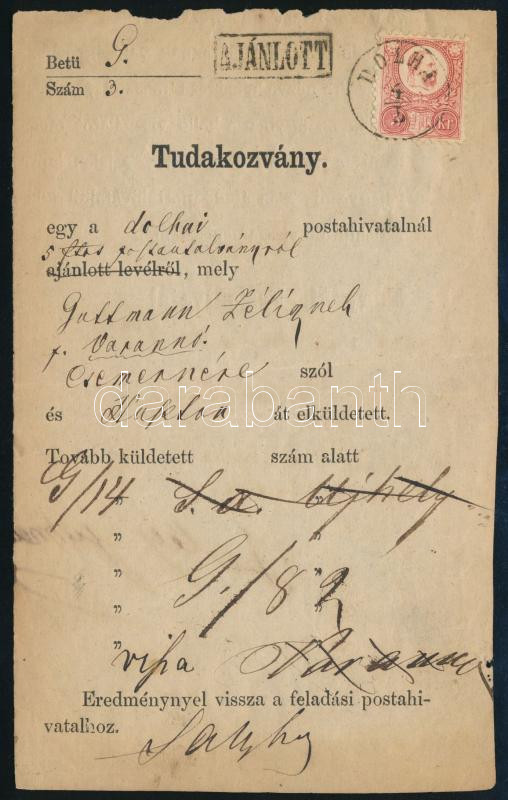 Betü G.
Szám 3.
AJÁNLOTT
DOLHA
Tudakozvány.
egy a dolhai postahivatalnál
5 ftos postautalványról
ajánlott levélről, mely
Guttmann Zélignek
p. Varannó.
Csemernére szól
és át elküldetett.
Tovább küldetett szám alatt
G/14 " S. a. Ujhely
"
" G./82
"
" vissza Varannó
Eredménynyel vissza a feladási postahi-
vatalhoz.
darabanth